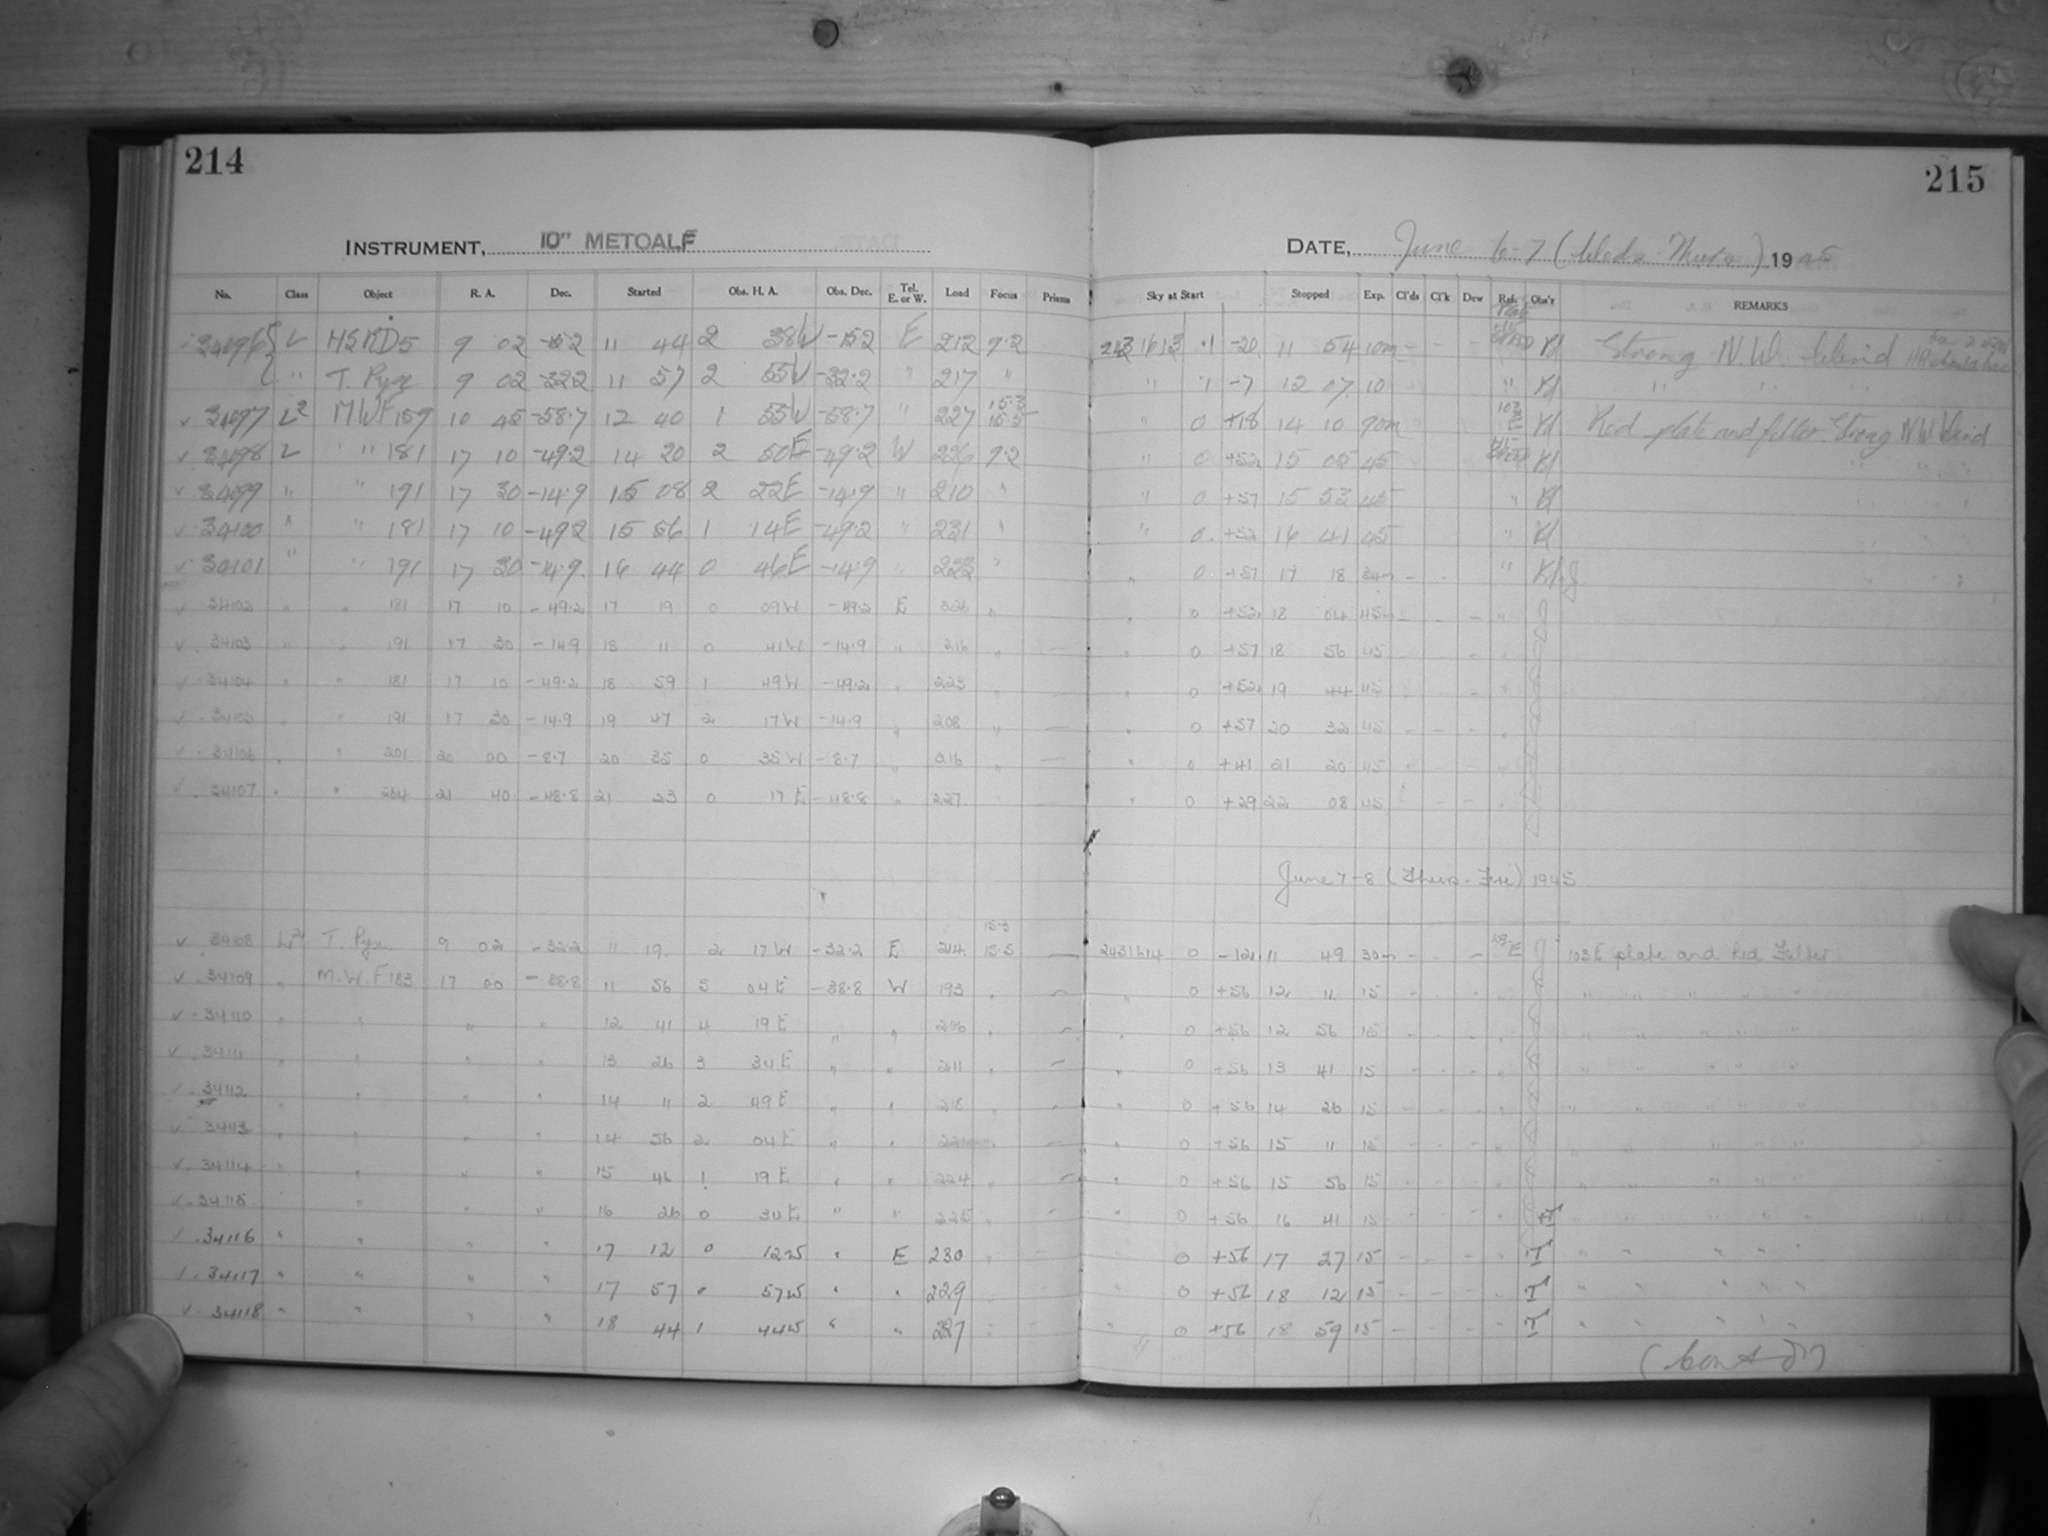 214
215
INSTRUMENT, 10" METCALF
DATE, June 6-7 (Weds-Thurs) 1945
No. Class Object R. A. Dec. Started Obs. H. A. Obs. Dec. Tel. E. or W. Load Focus Prisms Sky at Start Stopped Exp. Cl'ds Cl'k Dew Ref. Obs'r REMARKS
34096 L HSRD5 9 02 11 44 2 38W E 212 9.2 .1 -20 11 54 10m Strong N.W. Wind
" T. Pyx 9 02 -32.2 11 57 2 55W -32.2 " 217 " " .1 -7 12 07 10 "
34097 L2 MWF159 10 45 -58.7 12 40 1 55W -58.7 " 227 15.3 15.5 " 0 +18 14 10 90m 103 E Red plate and filter. Strong NW Wind
34098 L " " 181 17 10 -49.2 14 20 2 50E -49.2 W 226 9.2 " 0 +52 15 05 45
34099 " " 191 17 30 -14.9 15 08 2 22E -14.9 " 210 " " 0 +57 15 53 45 "
34100 " " 181 17 10 -49.2 15 56 1 14E -49.2 " 231 " " 0 +52 16 41 45 "
34101 " " 191 17 30 -14.9 16 44 0 46E -14.9 " " " 0 +57 17 18 34m - - "
34102 " " 181 17 10 -49.2 17 19 0 09W -49.2 E 226 " " 0 +52 18 04 45m - - - "
34103 " " 191 17 30 -14.9 18 11 0 41W -14.9 " 216 " - " 0 +57 18 56 45 - - - "
34104 " " 181 17 10 -49.2 18 59 1 49W -49.2 " 223 " - " 0 +52 19 44 45 - - - "
34105 " " 191 17 30 -14.9 19 47 2 17W -14.9 " 208 " - " 0 +57 20 32 45 - - - "
34106 " " 201 20 00 -8.7 20 35 0 35W -8.7 " 216 " - " 0 +41 21 20 45 - - - "
34107 " " 204 21 40 -48.8 21 23 0 17E -48.8 " 227 " - " 0 +29 22 08 45 - - - "
June 7-8 (Thurs-Fri) 1945
34108 L2 T. Pyx 9 02 -32.2 11 19 2 17W -32.2 E 214 15.3 15.5 2431614 0 -12 11 49 30m - - - 103 E 103E plate and Red Filter
34109 " M.W.F183 17 00 -38.8 11 56 5 04E -38.8 W 193 " - " 0 +56 12 11 15 - - - " " " " " "
34110 " " " " 12 41 4 19E " " 206 " - " 0 +56 12 56 15 - - - " " " " " "
34111 " " " " 13 26 3 34E " " 211 " - " 0 +56 13 41 15 - - - " " " " " "
34112 " " " " 14 11 2 49E " " 218 " - " 0 +56 14 26 15 - - - " " " " " "
34113 " " " " 14 56 2 04E " " - " 0 +56 15 11 15 - - - " " " " " "
34114 " " " " 15 41 1 19E " " 224 " - " 0 +56 15 56 15 - - - " " " " " "
34115 " " " " 16 26 0 34E " " 225 " - " 0 +56 16 41 15 - - - " " " " " "
34116 " " " " 17 12 0 12W " E 230 " - " 0 +56 17 27 15 - - - " T " " " " "
34117 " " " " 17 57 0 57W " " 229 " - " 0 +56 18 12 15 - - - " T " " " " "
34118 " " " " 18 44 1 44W " " 227 " - " 0 +56 18 59 15 - - - " T " " " " "
(Cont'd)